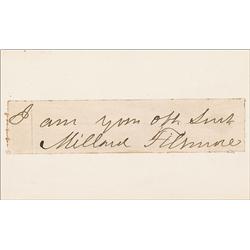 I am your Obt Servt
Millard Fillmore